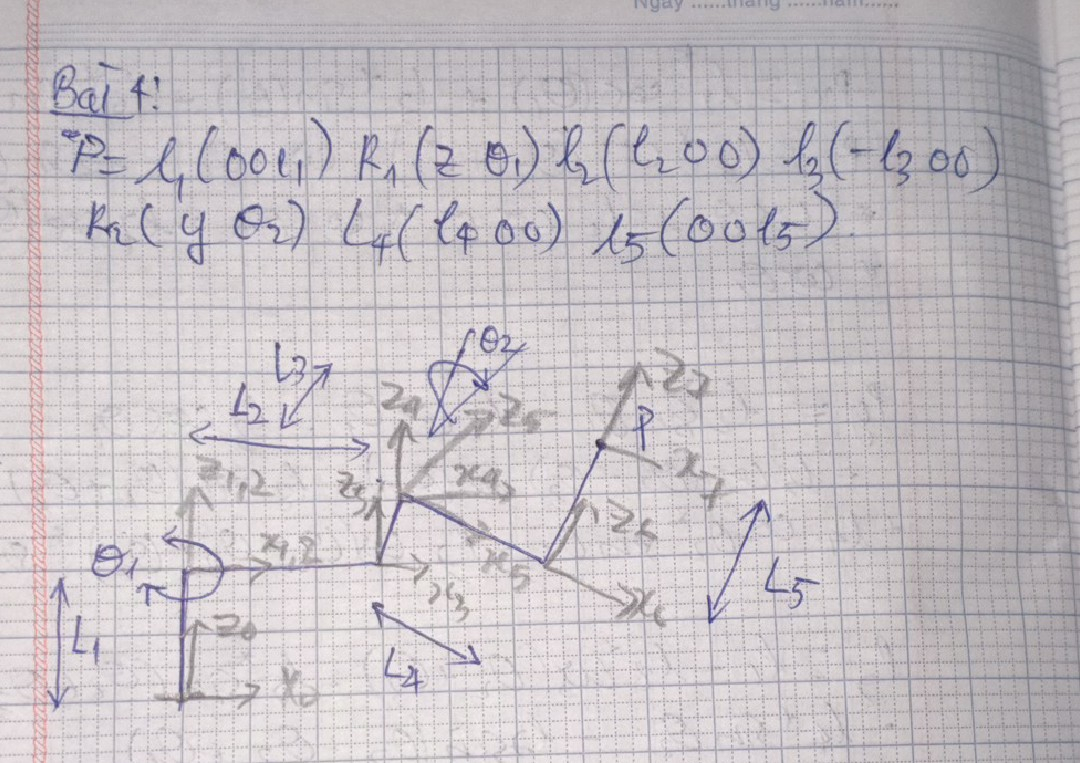 Ngày ......tháng ......năm......
Bài 4:
P = l1(00l1) R1(z θ1) l2(l2 00) l3(-l3 00)
R2(y θ2) L4(l4 00) l5(00l5).
L3
θ2
L2
Z4
Z5
Z7
P
Z1,2
Z3
X4
X7
θ1
X1,2
X5
Z6
X3
X6
L5
L1
Z0
L4
X0